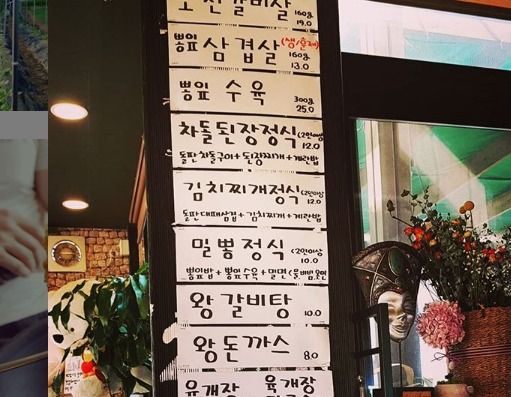 오천갈비살 160g 19.0
뽕잎 삼겹살 (생/훈제) 160g 13.0
뽕잎 수육 300g 25.0
차돌된장정식 (2인이상) 12.0
돌판차돌구이+된장찌개+계란밥
김치찌개정식 (2인이상) 12.0
돌판대패삼겹+김치찌개+계란밥
밀뽕정식 (2인이상) 10.0
뽕잎밥+뽕잎수육+밀면
왕 갈비탕 10.0
왕 돈까스 8.0
육개장 육개장